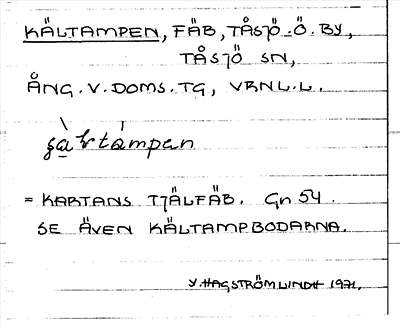 KÄLTAMPEN, FÄB, TÅSJÖ-Ö. BY,
TÅSJÖ SN,
ÅNG. V. DOMS. TG, VRNL. L.
= KARTANS TJÄLFÄB. Gn 54.
SE ÄVEN KÄLTAMPBODARNA.
Y. HAGSTRÖM LINDH 1971.